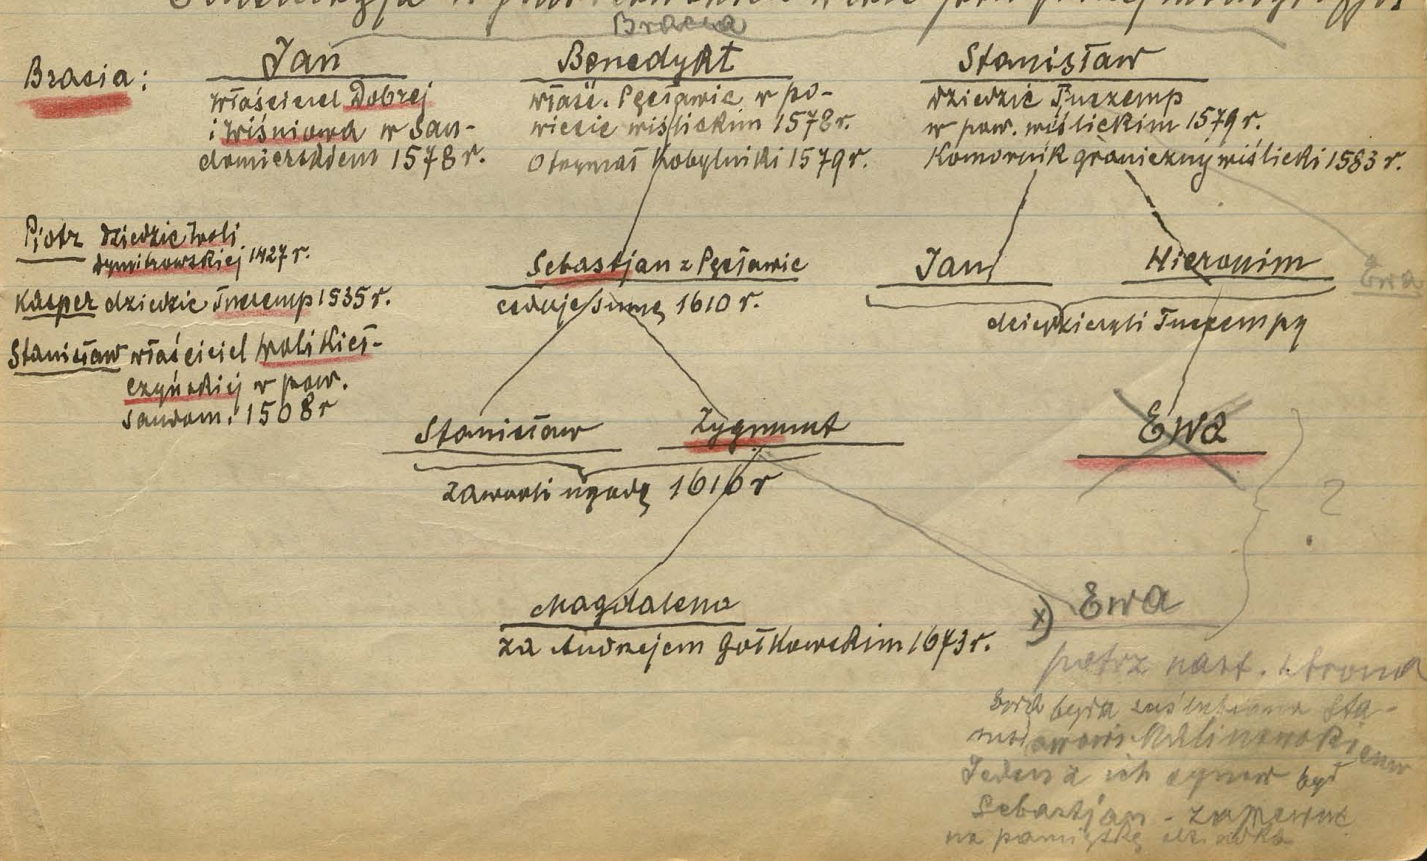 Bracia
Bracia:
Jan
właściciel Dobrej
i Wiśniowa w San-
domierskiem 1578 r.
Benedykt
właśc. Pęcławic w po-
wiecie wiślickim 1578 r.
Otrzymał Kobylniki 1579 r.
Stanisław
dziedzic Tuczemp
w pow. wiślickim 1579 r.
Komornik graniczny wiślicki 1583 r.
Piotr dziedzic Woli
Dymitrowskiej 1427 r.
Kasper dziedzic Tuczemp 1535 r.
Stanisław właściciel Woli Kieł-
czyńskiej w pow.
Sandom. 1508 r
Sebastjan z Pęcławic
ceduje sumę 1610 r.
Jan
Hieronim
Ewa
dziedziczyli Tuczempy
Stanisław
Zygmunt
zawarli ugodę 1616 r
Ewa
?
Magdalena
za Andrzejem Gołkowskim 1673 r.
x) Ewa
patrz nast. strona
Ewa była zaślubiona Sta-
nisławowi Kalinowskiemu
Jeden z ich synów był
Sebastjan - zapewne
na pamiątkę dziadka